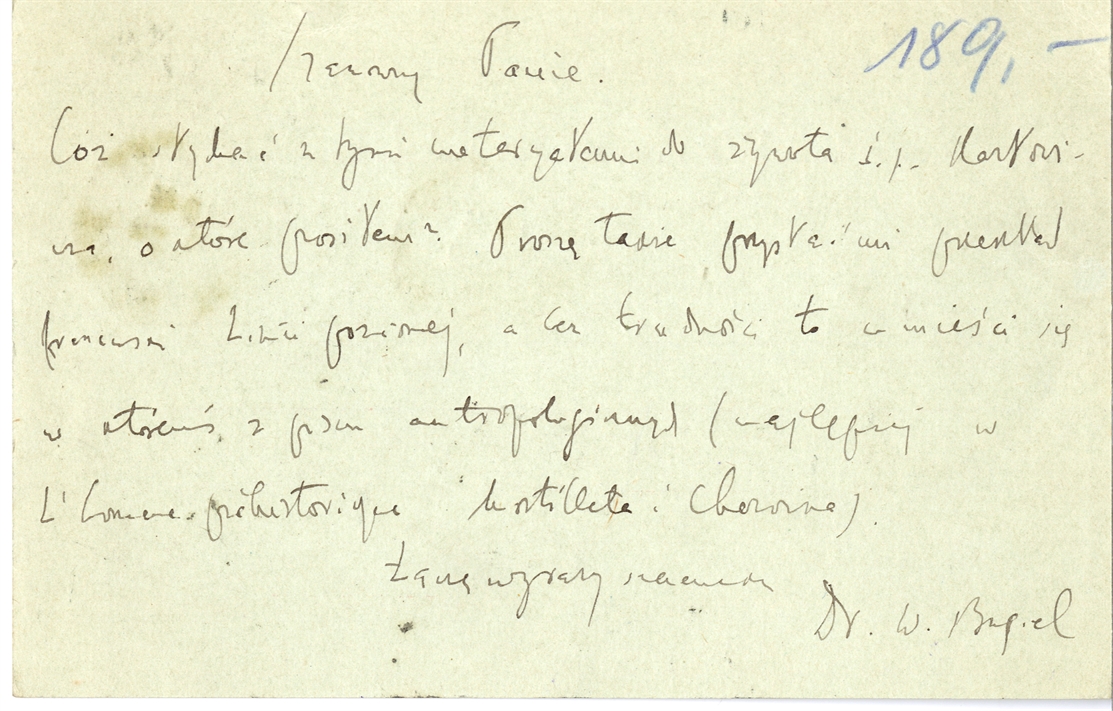 189,—
Szanowny Panie.
Cóż słychać z tymi materyałami do żywota ś.p.
o które prosiłem? Proszę także przysłać mi przekład
francuski, a bez trudności to umieści się
w któremś z pism antropologicznych (najlepiej w
L'homme préhistorique Mortilleta i Chervina).
Łączę wyrazy szacunku
Dr. W. Bugiel